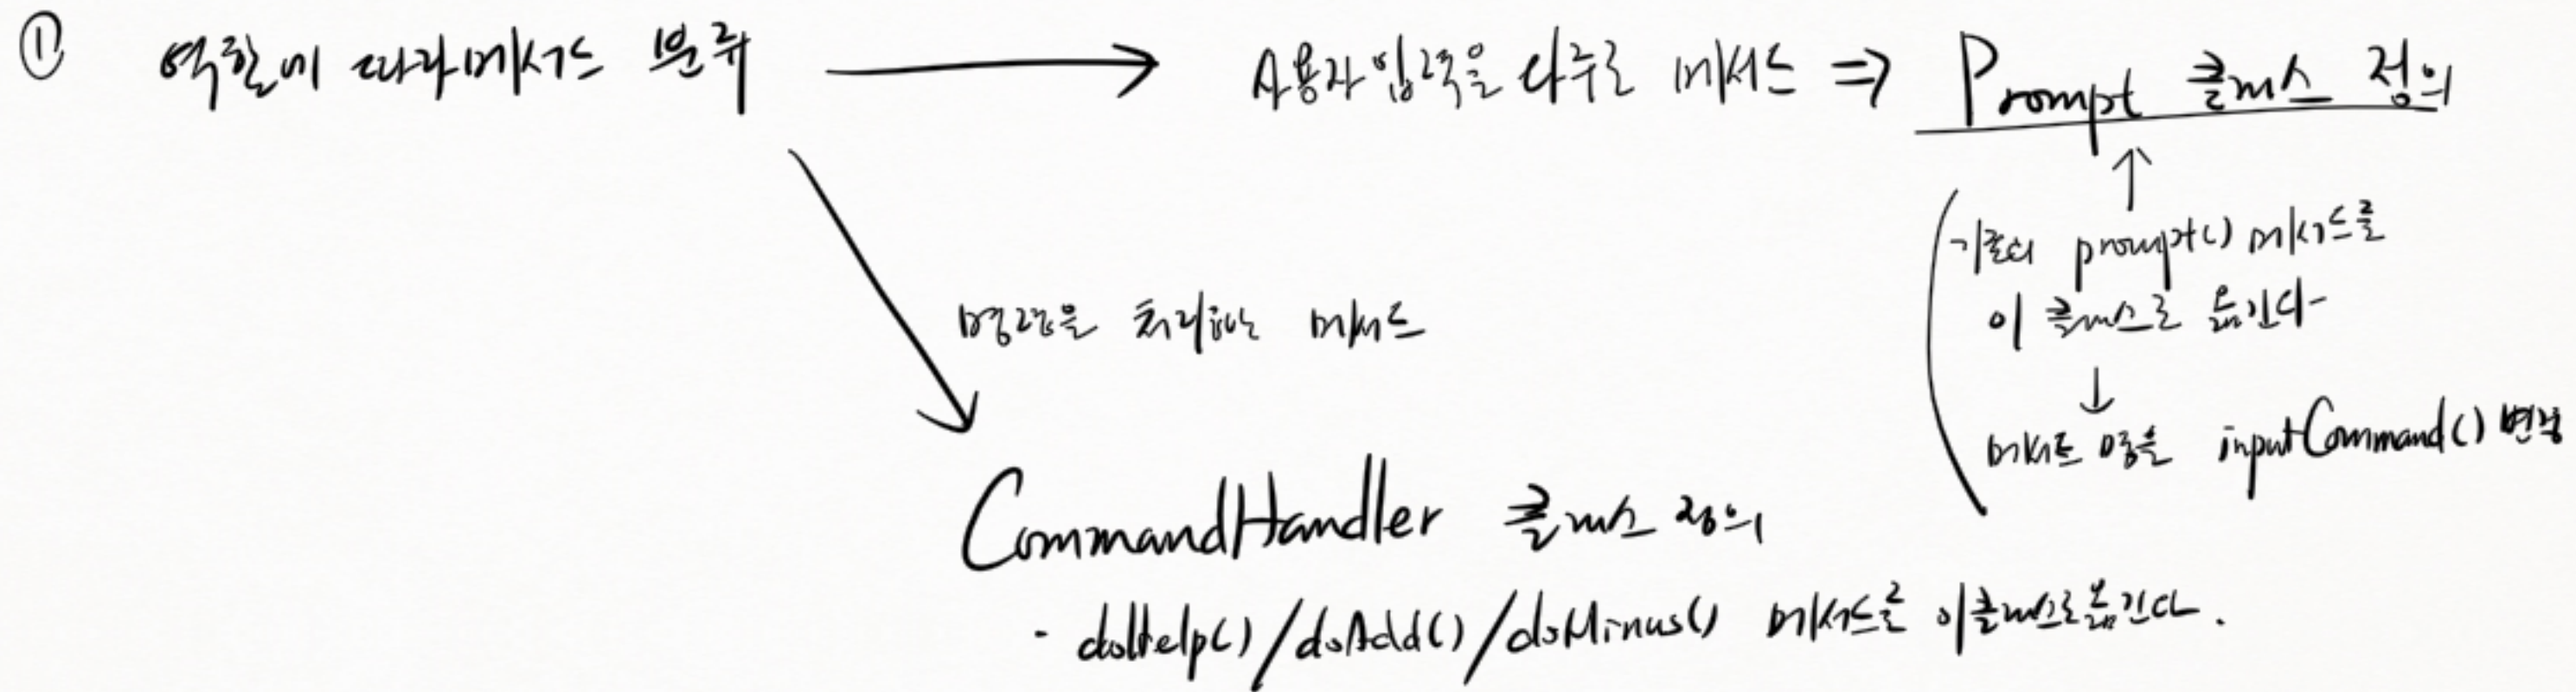 ① 역할에 따라 메서드 분류 → 사용자 입력을 다루는 메서드 ⇒ Prompt 클래스 정의
↑
기존의 prompt() 메서드를
이 클래스로 옮긴다
↓
메서드 이름을 inputCommand() 변경
명령을 처리하는 메서드
CommandHandler 클래스 정의
- doHelp()/doAdd()/doMinus() 메서드를 이 클래스로 옮긴다.